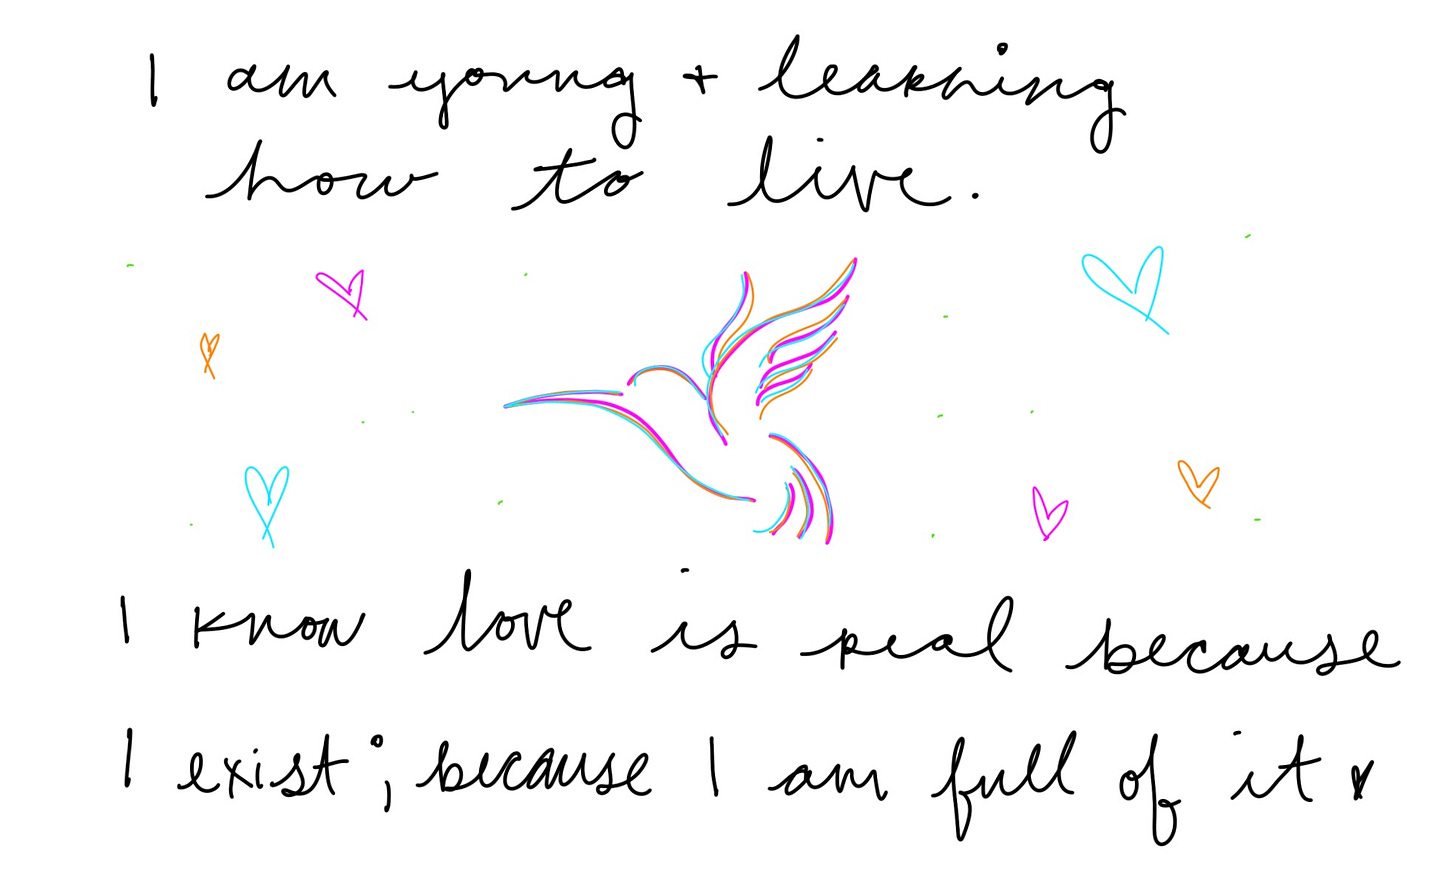 I am young + learning
how to live.
I know love is real because
I exist; because I am full of it